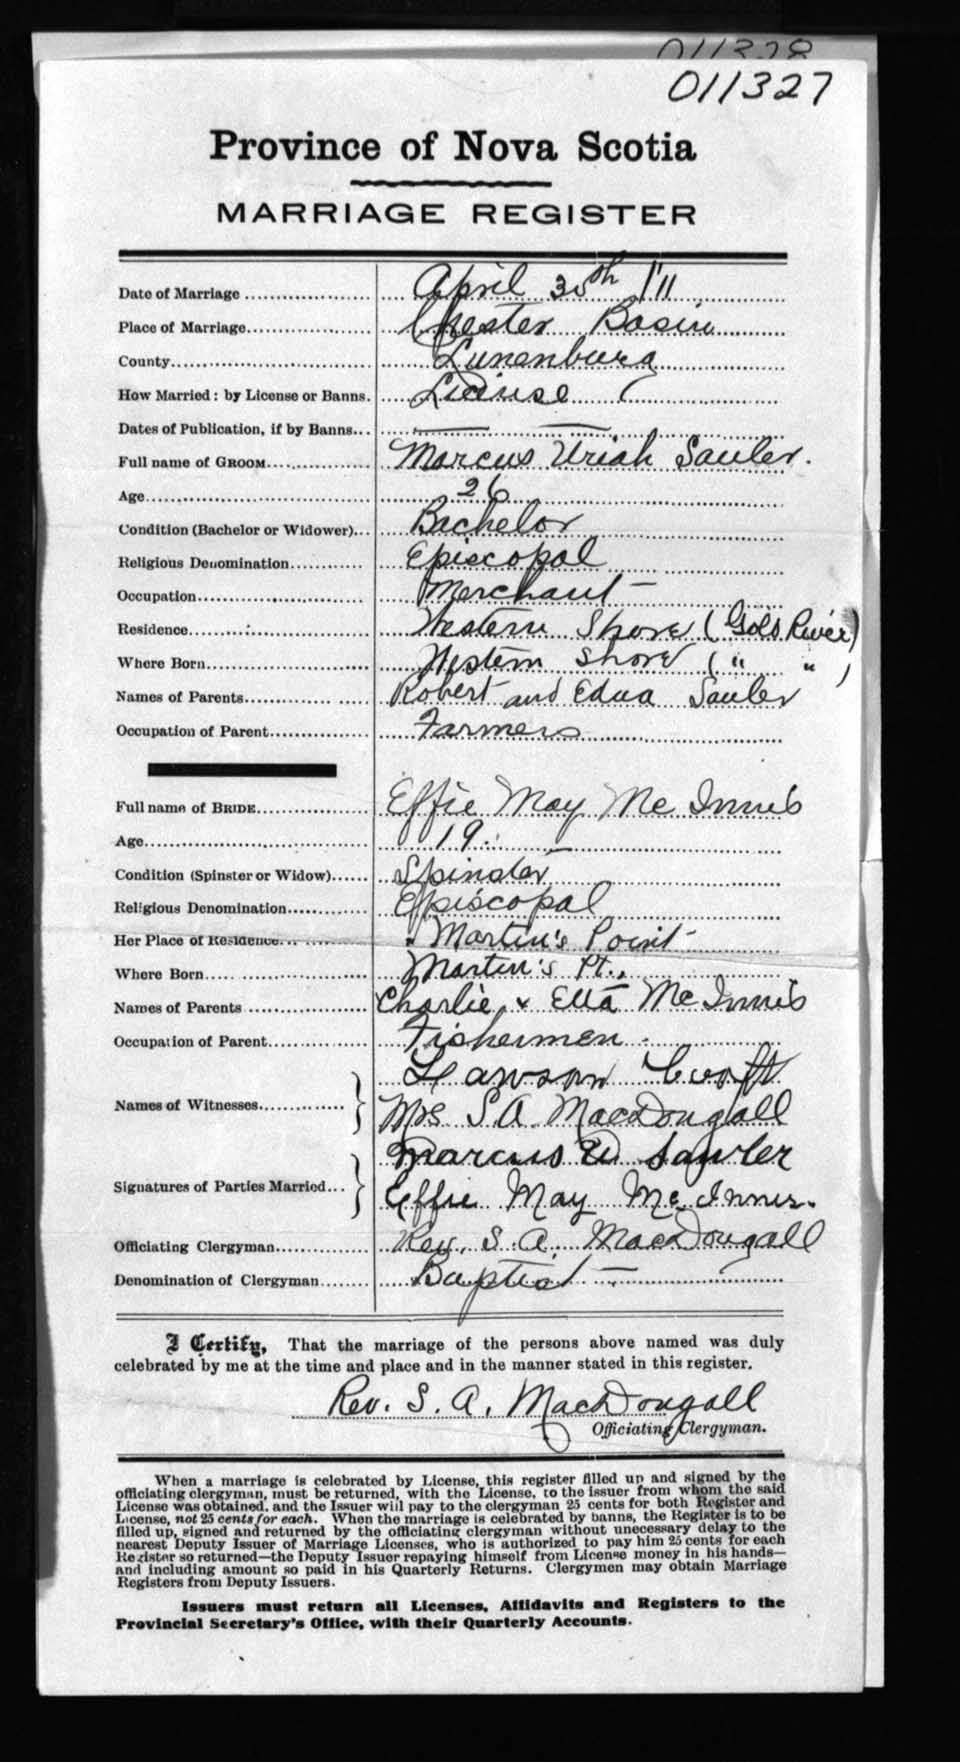 011328
011327
Province of Nova Scotia
MARRIAGE REGISTER
Date of Marriage April 30th 1'11
Place of Marriage Chester Basin
County Lunenburg
How Married: by License or Banns. License
Dates of Publication, if by Banns
Full name of GROOM Marcus Uriah Sawler.
Age 26
Condition (Bachelor or Widower) Bachelor
Religious Denomination Episcopal
Occupation Merchant
Residence Western Shore (Gold River)
Where Born Western Shore ( " " )
Names of Parents Robert and Edna Sawler
Occupation of Parent Farmers
Full name of BRIDE Effie May McInnis
Age 19
Condition (Spinster or Widow) Spinster
Religious Denomination Episcopal
Her Place of Residence Martin's Point
Where Born Martin's Pt.,
Names of Parents Charlie & Etta McInnis
Occupation of Parent Fishermen
Lawson Croft
Names of Witnesses
Mrs S.A. MacDougall
Marcus U Sawler
Signatures of Parties Married
Effie May McInnis.
Officiating Clergyman Rev. S. A. MacDougall
Denomination of Clergyman Baptist
I Certify, That the marriage of the persons above named was duly
celebrated by me at the time and place and in the manner stated in this register.
Rev. S. A. MacDougall
Officiating Clergyman.
When a marriage is celebrated by License, this register filled up and signed by the
officiating clergyman, must be returned, with the License, to the issuer from whom the said
License was obtained, and the Issuer will pay to the clergyman 25 cents for both Register and
License, not 25 cents for each. When the marriage is celebrated by banns, the Register is to be
filled up, signed and returned by the officiating clergyman without unnecessary delay to the
nearest Deputy Issuer of Marriage Licenses, who is authorized to pay him 25 cents for each
Register so returned—the Deputy Issuer repaying himself from License money in his hands—
and including amount so paid in his Quarterly Returns. Clergymen may obtain Marriage
Registers from Deputy Issuers.
Issuers must return all Licenses, Affidavits and Registers to the
Provincial Secretary's Office, with their Quarterly Accounts.